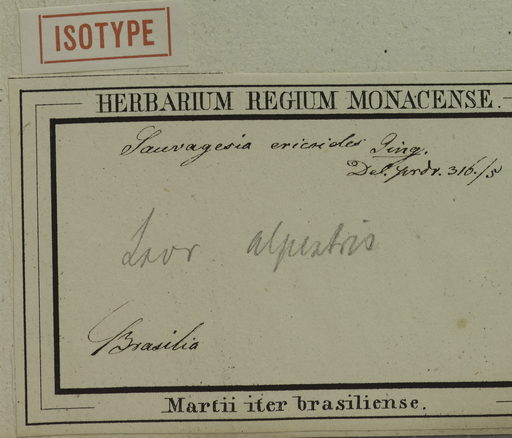 ISOTYPE
HERBARIUM REGIUM MONACENSE.
Sauvagesia ericoides Ging.
Del. prdr. 316./5
Lavr alpestris
Brasilia
Martii iter brasiliense.